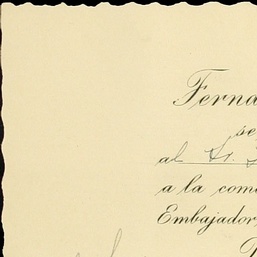 Ferna
se
al Sr.
a la com
Embajador